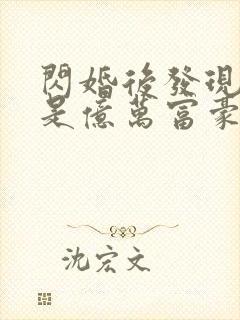 閃婚後發現
是億萬富豪
沈宏文